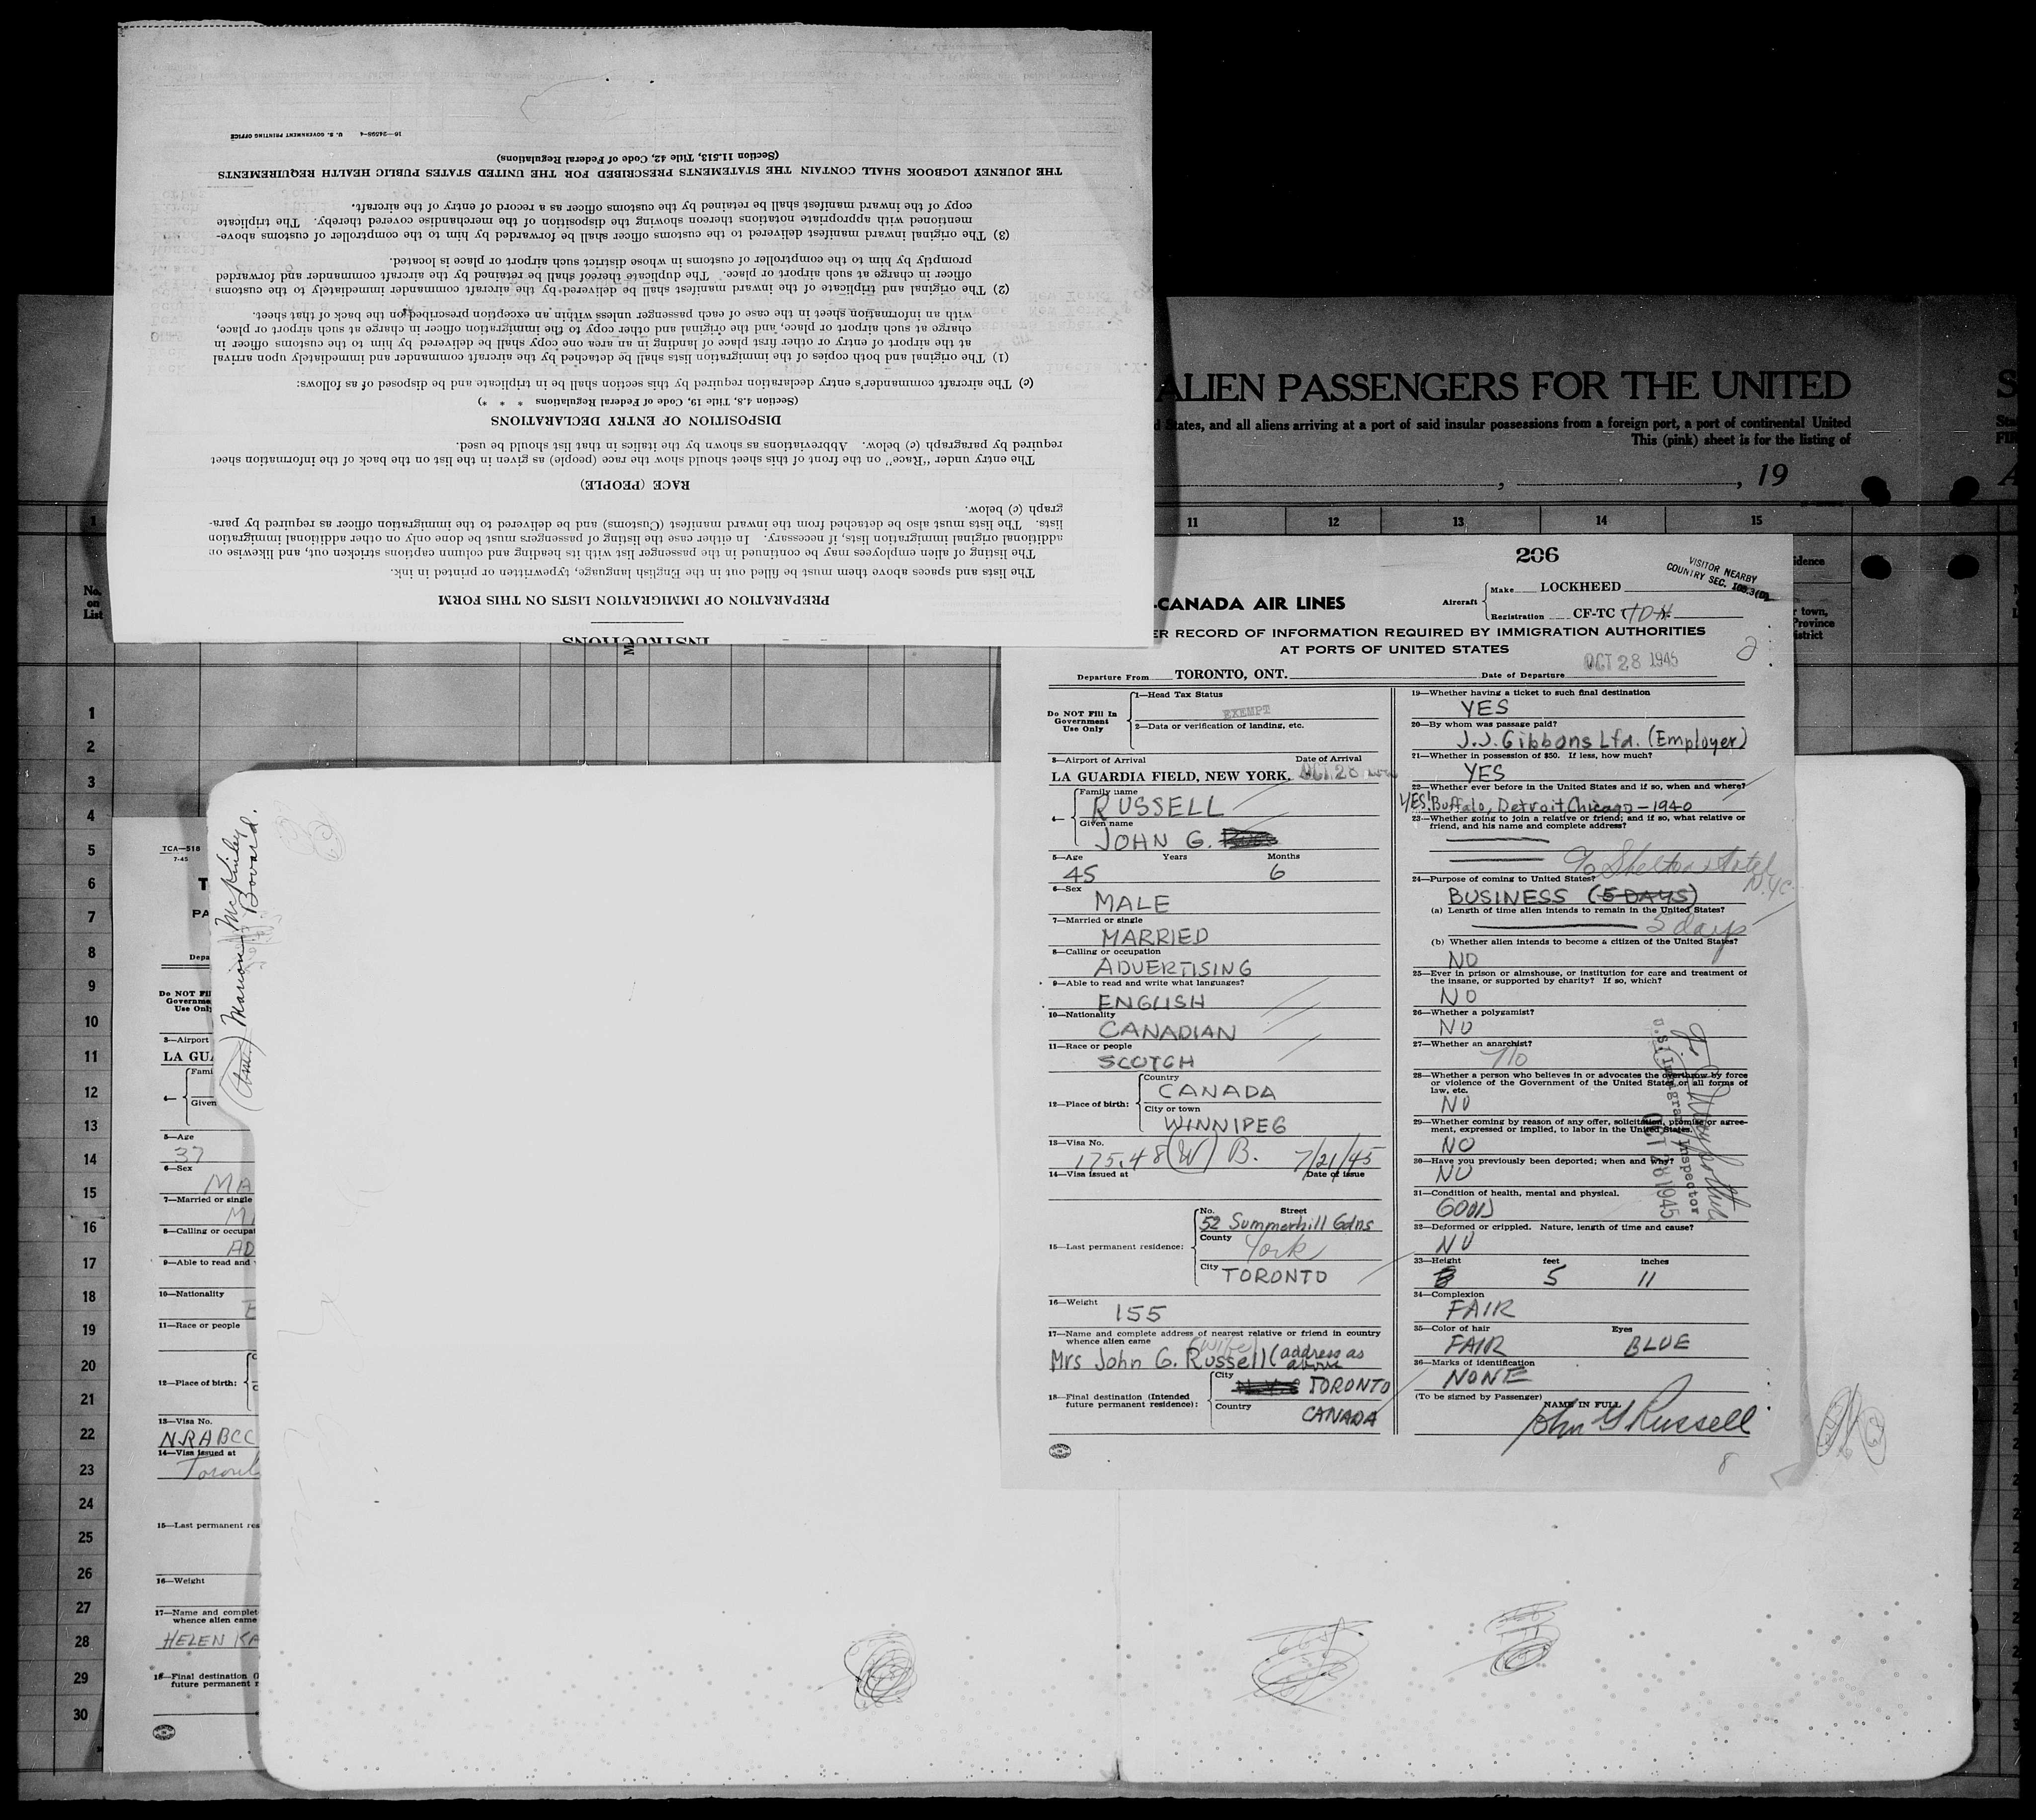 INSTRUCTIONS
PREPARATION OF IMMIGRATION LISTS ON THIS FORM
The lists and spaces above them must be filled out in the English language, typewritten or printed in ink.
The listing of alien employees may be continued in the passenger list with its heading and column captions stricken out, and likewise on
additional original immigration lists, if necessary. In either case the listing of passengers must be done only on other additional immigration
lists. The lists must also be detached from the inward manifest (Customs) and be delivered to the immigration officer as required by para-
graph (c) below.
RACE (PEOPLE)
The entry under "Race" on the front of this sheet should show the race (people) as given in the list on the back of the information sheet
required by paragraph (c) below. Abbreviations as shown by the italics in that list should be used.
DISPOSITION OF ENTRY DECLARATIONS
(Section 4.8, Title 19, Code of Federal Regulations * * *)
(c) The aircraft commander's entry declaration required by this section shall be in triplicate and be disposed of as follows:
(1) The original and both copies of the immigration lists shall be detached by the aircraft commander and immediately upon arrival
at the airport of entry or other first place of landing in an area one copy shall be delivered by him to the customs officer in
charge at such airport or place, and the original and other copy to the immigration officer in charge at such airport or place,
with an information sheet in the case of each passenger unless within an exception prescribed on the back of that sheet.
(2) The original and triplicate of the inward manifest shall be delivered by the aircraft commander immediately to the customs
officer in charge at such airport or place. The duplicate thereof shall be retained by the aircraft commander and forwarded
promptly by him to the comptroller of customs in whose district such airport or place is located.
(3) The original inward manifest delivered to the customs officer shall be forwarded by him to the comptroller of customs above-
mentioned with appropriate notations thereon showing the disposition of the merchandise covered thereby. The triplicate
copy of the inward manifest shall be retained by the customs officer as a record of entry of the aircraft.
THE JOURNEY LOGBOOK SHALL CONTAIN THE STATEMENTS PRESCRIBED FOR THE UNITED STATES PUBLIC HEALTH REQUIREMENTS
(Section 11.513, Title 42, Code of Federal Regulations)
16—24598-4 U. S. GOVERNMENT PRINTING OFFICE
ALIEN PASSENGERS FOR THE UNITED
States, and all aliens arriving at a port of said insular possessions from a foreign port, a port of continental United
This (pink) sheet is for the listing of
, , 19
11 12 13 14 15
No. on List
1
2
3
4
5
6
7
8
9
10
11
12
13
14
15
16
17
18
19
20
21
22
23
24
25
26
27
28
29
30
206
VISITOR NEARBY
COUNTRY SEC.
-CANADA AIR LINES
Aircraft
Make LOCKHEED
Registration CF-TC
ER RECORD OF INFORMATION REQUIRED BY IMMIGRATION AUTHORITIES
AT PORTS OF UNITED STATES
2
Departure From TORONTO, ONT.
Date of Departure OCT 28 1945
Do NOT Fill In
Government
Use Only
1—Head Tax Status
EXEMPT
2—Data or verification of landing, etc.
3—Airport of Arrival Date of Arrival
LA GUARDIA FIELD, NEW YORK. OCT 28
4—
Family name
RUSSELL
Given name
JOHN G.
5—Age Years Months
45 6
6—Sex
MALE
7—Married or single
MARRIED
8—Calling or occupation
ADVERTISING
9—Able to read and write what languages?
ENGLISH
10—Nationality
CANADIAN
11—Race or people
SCOTCH
12—Place of birth:
Country
CANADA
City or town
WINNIPEG
13—Visa No.
175.48 (W) B. 7/21/45
14—Visa issued at Date of issue
15—Last permanent residence:
No. Street
52 Summerhill Gdns
County
York
City TORONTO
16—Weight
155
17—Name and complete address of nearest relative or friend in country
whence alien came
(wife)
Mrs John G. Russell (address as
above
18—Final destination (Intended
future permanent residence):
City
TORONTO
Country
CANADA
19—Whether having a ticket to such final destination
YES
20—By whom was passage paid?
J.J. Gibbons Ltd. (Employer)
21—Whether in possession of $50. If less, how much?
YES
22—Whether ever before in the United States and if so, when and where?
YES! Buffalo, Detroit, Chicago - 1940
23—Whether going to join a relative or friend; and if so, what relative or
friend, and his name and complete address?
% Shelton Hotel
N.Y.C.
24—Purpose of coming to United States?
BUSINESS (5 DAYS)
(a) Length of time alien intends to remain in the United States?
5 days
(b) Whether alien intends to become a citizen of the United States?
NO
25—Ever in prison or almshouse, or institution for care and treatment of
the insane, or supported by charity? If so, which?
NO
26—Whether a polygamist?
NO
27—Whether an anarchist?
No
28—Whether a person who believes in or advocates the overthrow by force
or violence of the Government of the United States or all forms of
law, etc.
NO
29—Whether coming by reason of any offer, solicitation, promise or agree-
ment, expressed or implied, to labor in the United States.
NO
30—Have you previously been deported; when and why?
NO
31—Condition of health, mental and physical.
GOOD
32—Deformed or crippled. Nature, length of time and cause?
NO
33—Height feet inches
5 11
34—Complexion
FAIR
35—Color of hair Eyes
FAIR BLUE
36—Marks of identification
NONE
(To be signed by Passenger)
NAME IN FULL
John G Russell
8
U.S. Immigrant Inspector
OCT 28 1945
Marion McKinley
Bovard.
TCA—518
7-45
T
PA
Depa
Do NOT Fil
Governme
Use Onl
3—Airport
LA GUA
4—
Fami
Given
5—Age
37
6—Sex
MA
7—Married or single
M
8—Calling or occupat
AD
9—Able to read and
10—Nationality
11—Race or people
12—Place of birth:
13—Visa No.
NRABCC
14—Visa issued at
Toront
15—Last permanent res
16—Weight
17—Name and complet
whence alien came
HELEN KA
18—Final destination (I
future permanent r
idence
r town,
Province
istrict